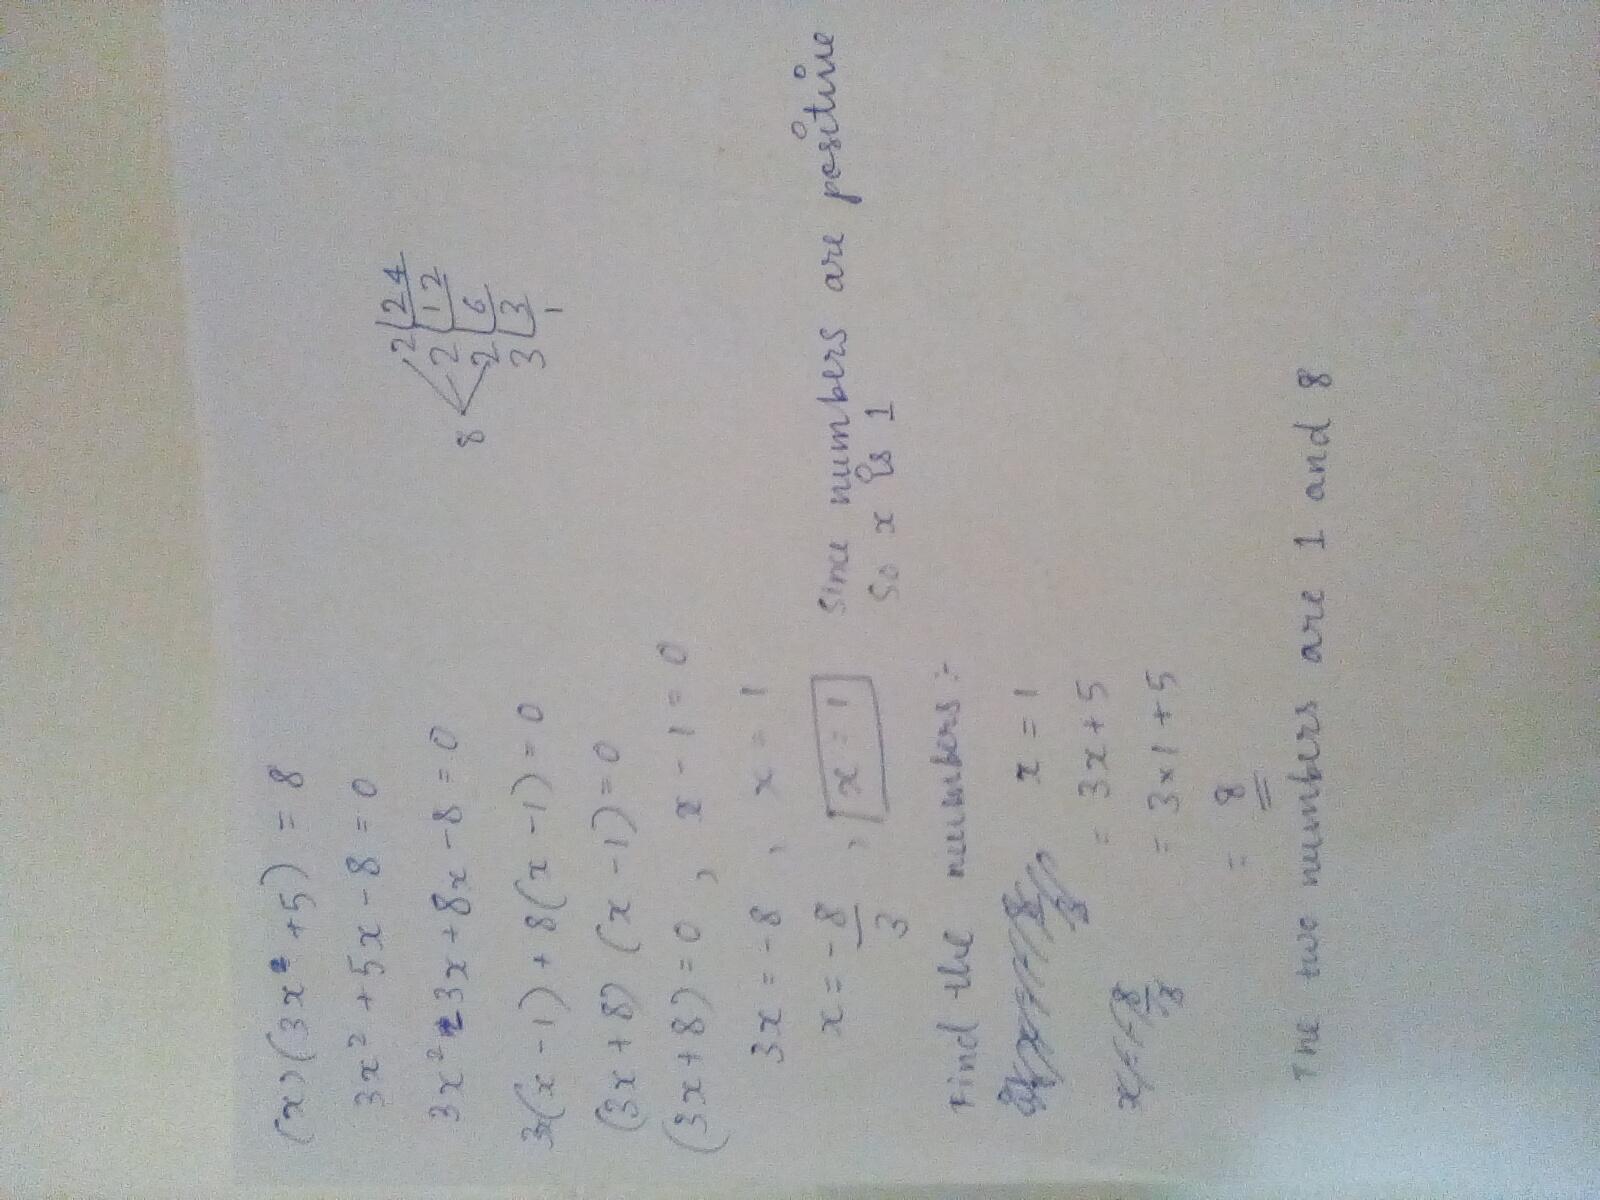 (x)(3x +5) = 8
3x² + 5x - 8 = 0
3x² - 3x + 8x - 8 = 0
3x(x - 1) + 8(x - 1) = 0
(3x + 8) (x - 1) = 0
(3x + 8) = 0 , x - 1 = 0
3x = -8 , x = 1
x = -8/3 , x = 1
2 24
2 12
2 6
3 3
1
8
Since numbers are positive
So x is 1
Find the numbers :-
x = 1
= 3x + 5
= 3 × 1 + 5
= 8
The two numbers are 1 and 8